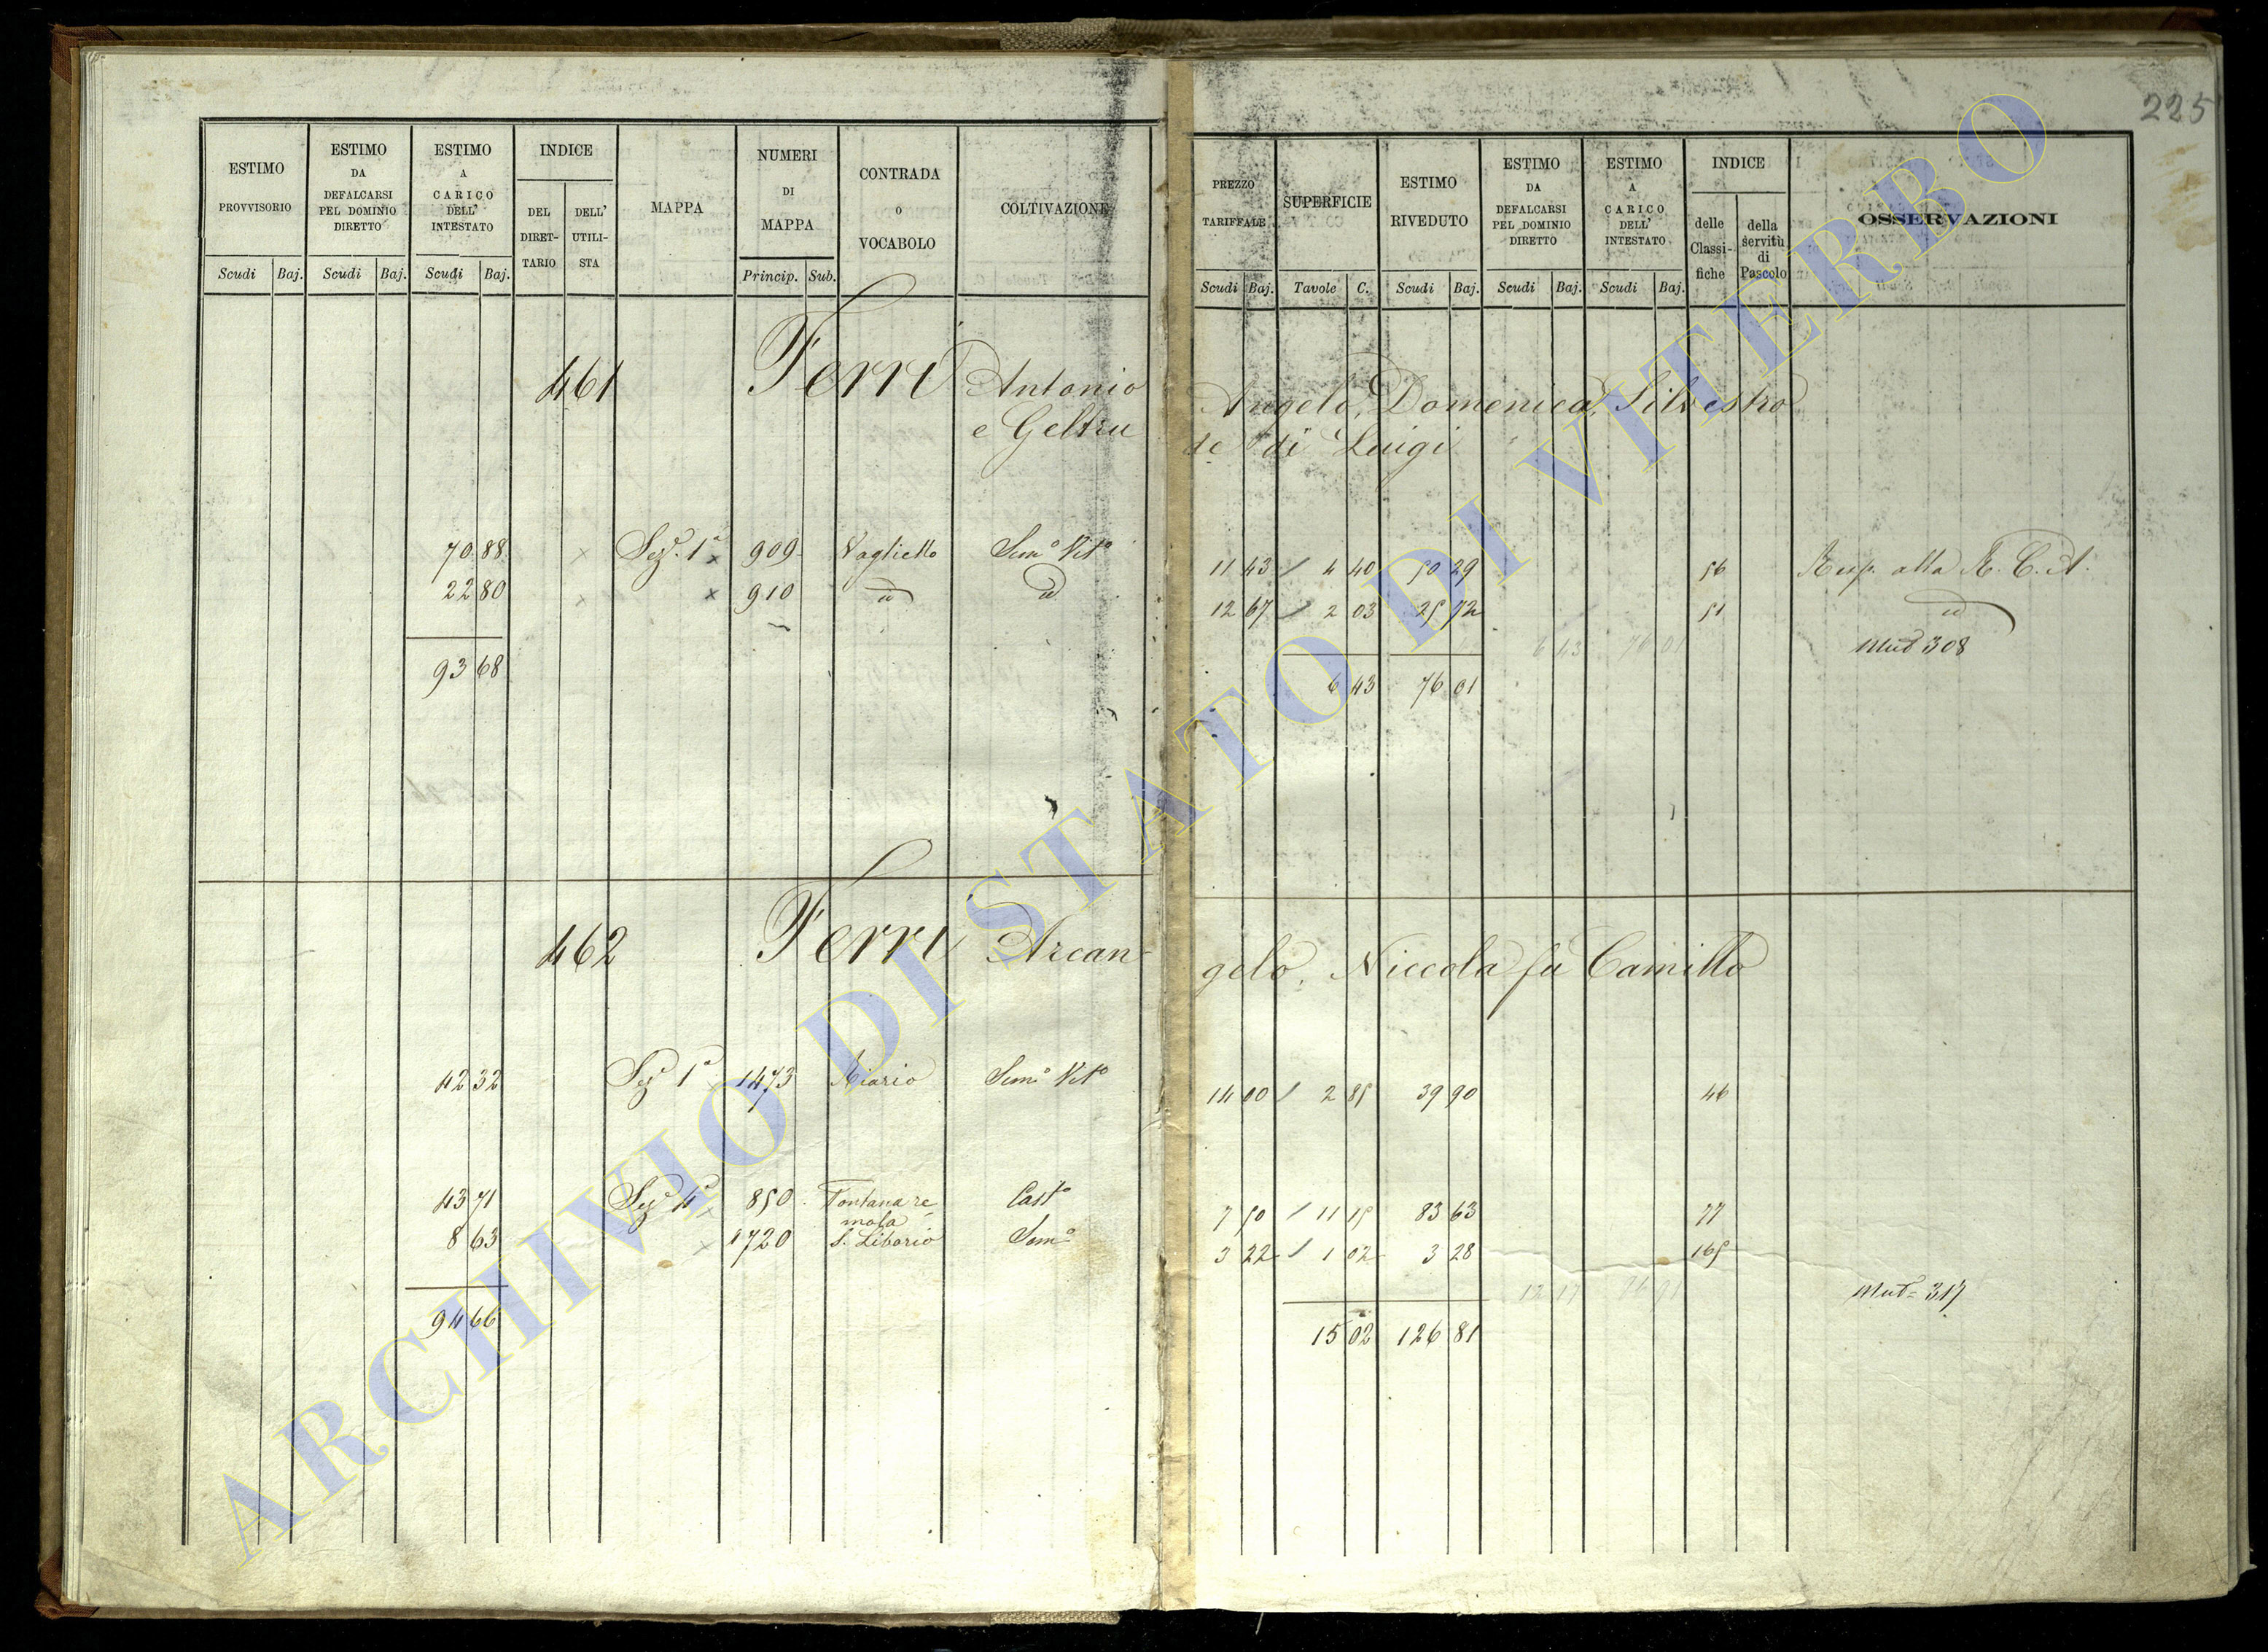 225
ESTIMO PROVVISORIO
ESTIMO DA DEFALCARSI PEL DOMINIO DIRETTO
ESTIMO A CARICO DELL' INTESTATO
INDICE
DEL DIRET- TARIO
DELL' UTILI- STA
MAPPA
NUMERI DI MAPPA
CONTRADA O VOCABOLO
COLTIVAZIONE
PREZZO TARIFFALE
SUPERFICIE
ESTIMO RIVEDUTO
ESTIMO DA DEFALCARSI PEL DOMINIO DIRETTO
ESTIMO A CARICO DELL' INTESTATO
INDICE
delle Classi- fiche
della servitù di Pascolo
OSSERVAZIONI
Scudi Baj. Scudi Baj. Scudi Baj. Princip. Sub. Scudi Baj. Tavole C. Scudi Baj. Scudi Baj. Scudi Baj.
461 Ferri Antonio Angelo, Domenica, Silvestro
e Geltru de di Luigi
70 88 Sez. 1ª 909 Vaglietto Semo Vito 11 43 4 40 50 29 56 Risp. alla R. C. A.
22 80 910 id id 12 67 2 03 25 72 51 id
6 43 76 01 Mut 308
93 68 6 43 76 01
462 Ferri Arcan- gelo, Niccola fu Camillo
42 32 Sez 1ª 1473 Riario Semo Vito 14 00 2 85 39 90 46
43 71 Sez 4ª 850 Fontana re- Casto 7 50 11 15 83 63 77
mola
8 63 1720 S. Liborio Semo 3 22 1 02 3 28 165
Mut 317
94 66 15 02 126 81
ARCHIVIO DI STATO DI VITERBO